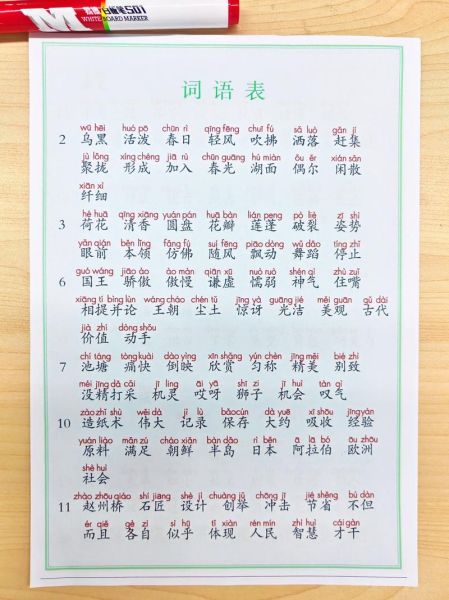 白板笔501
WHITE BOARD MARKER
词语表
wū hēi huó pō chūn rì qīng fēng chuī fú sǎ luò gǎn jí
2 乌黑 活泼 春日 轻风 吹拂 洒落 赶集
jù lǒng xíng chéng jiā rù chūn guāng hú miàn ǒu ěr xián sǎn
聚拢 形成 加入 春光 湖面 偶尔 闲散
xiān xì
纤细
hé huā qīng xiāng yuán pán huā bàn lián peng pò liè zī shì
3 荷花 清香 圆盘 花瓣 莲蓬 破裂 姿势
yǎn qián běn lǐng fǎng fú suí fēng piāo dòng wǔ dǎo tíng zhǐ
眼前 本领 仿佛 随风 飘动 舞蹈 停止
guó wáng jiāo ào ào màn qiān xū nuò ruò shén qì zhù zuǐ
6 国王 骄傲 傲慢 谦虚 懦弱 神气 住嘴
xiāng tí bìng lùn wáng cháo chén tǔ jīng yà guāng jié měi guān gǔ dài
相提并论 王朝 尘土 惊讶 光洁 美观 古代
jià zhí dòng shǒu
价值 动手
chí táng tòng kuài dào yìng xīn shǎng yún chèn jīng měi bié zhì
7 池塘 痛快 倒映 欣赏 匀称 精美 别致
méi jīng dǎ cǎi jī líng āi yā shī zi jī huì tàn qì
没精打采 机灵 哎呀 狮子 机会 叹气
zào zhǐ shù wěi dà jì lù bǎo cún dà yuē xī shōu jīng yàn
10 造纸术 伟大 记录 保存 大约 吸收 经验
yuán liào mǎn zú cháo xiǎn bàn dǎo rì běn ā lā bó ōu zhōu
原料 满足 朝鲜 半岛 日本 阿拉伯 欧洲
shè huì
社会
zhào zhōu qiáo shí jiàng shè jì chuàng jǔ chōng jī jié shěng bú dàn
11 赵州桥 石匠 设计 创举 冲击 节省 不但
ér qiě gè zì sì hū tǐ xiàn rén mín zhì huì cái gàn
而且 各自 似乎 体现 人民 智慧 才干